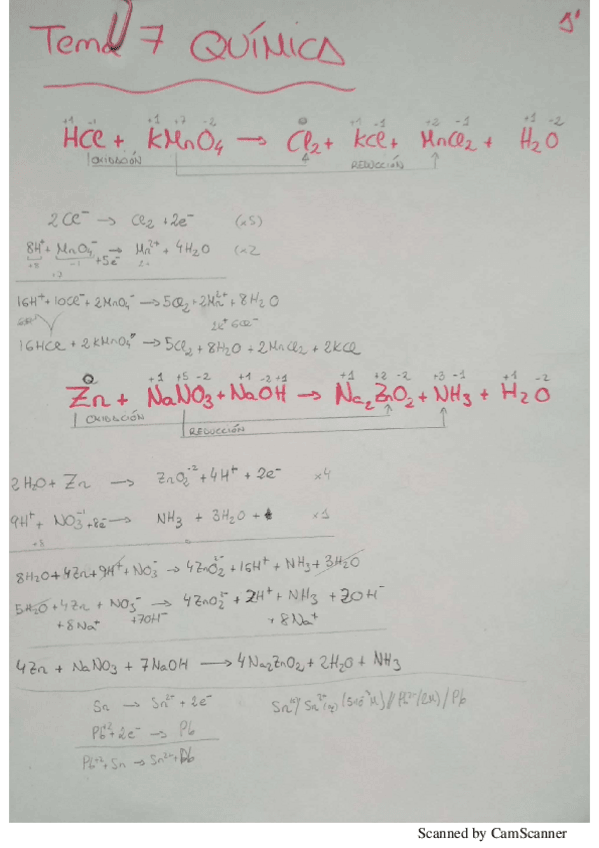 Tema 7 QUÍMICA
+1 -1 +1 +7 -2 0 +1 -1 +2 -1 +1 -2
HCl + KMnO4 → Cl2 + KCl + MnCl2 + H2O
OXIDACIÓN REDUCCIÓN
2Cl⁻ → Cl2 + 2e⁻ (x5)
8H⁺ + MnO4⁻ + 5e⁻ → Mn²⁺ + 4H2O (x2
16H⁺ + 10Cl⁻ + 2MnO4⁻ → 5Cl2 + 2Mn²⁺ + 8H2O
16HCl + 2KMnO4 → 5Cl2 + 8H2O + 2MnCl2 + 2KCl
0 +1 +5 -2 +1 -2 +1 +1 +2 -2 +3 -1 +1 -2
Zn + NaNO3 + NaOH → Na2ZnO2 + NH3 + H2O
OXIDACIÓN
REDUCCIÓN
2H2O + Zn → ZnO2⁻² + 4H⁺ + 2e⁻ x4
9H⁺ + NO3⁻¹ + 8e⁻ → NH3 + 3H2O + x1
8H2O + 4Zn + 9H⁺ + NO3⁻ → 4ZnO2²⁻ + 16H⁺ + NH3 + 3H2O
5H2O + 4Zn + NO3⁻ → 4ZnO2²⁻ + 7H⁺ + NH3 + 7OH⁻
+8Na⁺ +7OH⁻ +8Na⁺
4Zn + NaNO3 + 7NaOH → 4Na2ZnO2 + 2H2O + NH3
Sn → Sn²⁺ + 2e⁻
Pb⁺² + 2e⁻ → Pb
Pb⁺² + Sn → Sn²⁺ + Pb
Scanned by CamScanner